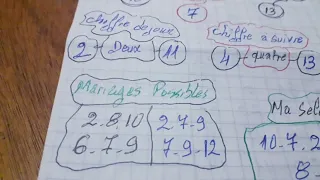 7
13
Chiffre de jeux
2 - Deux - 11
Chiffre a suivre
4 - quatre - 13
Mariages Possibles
2.8.10
6.7.9
2.7.9
7.9.12
Ma
10.7.2
8.